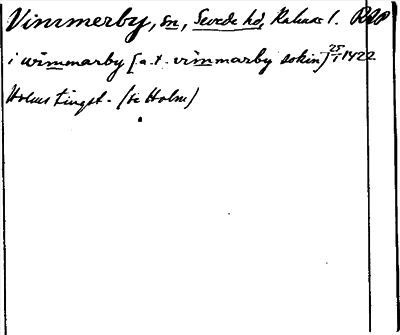 Vimmerby, sn, Sevede hd, Kalmar l. RAP
i wimmarby [a.t. vimmarby sokin] 25/1 1422
Holms tingst. (se Holm)